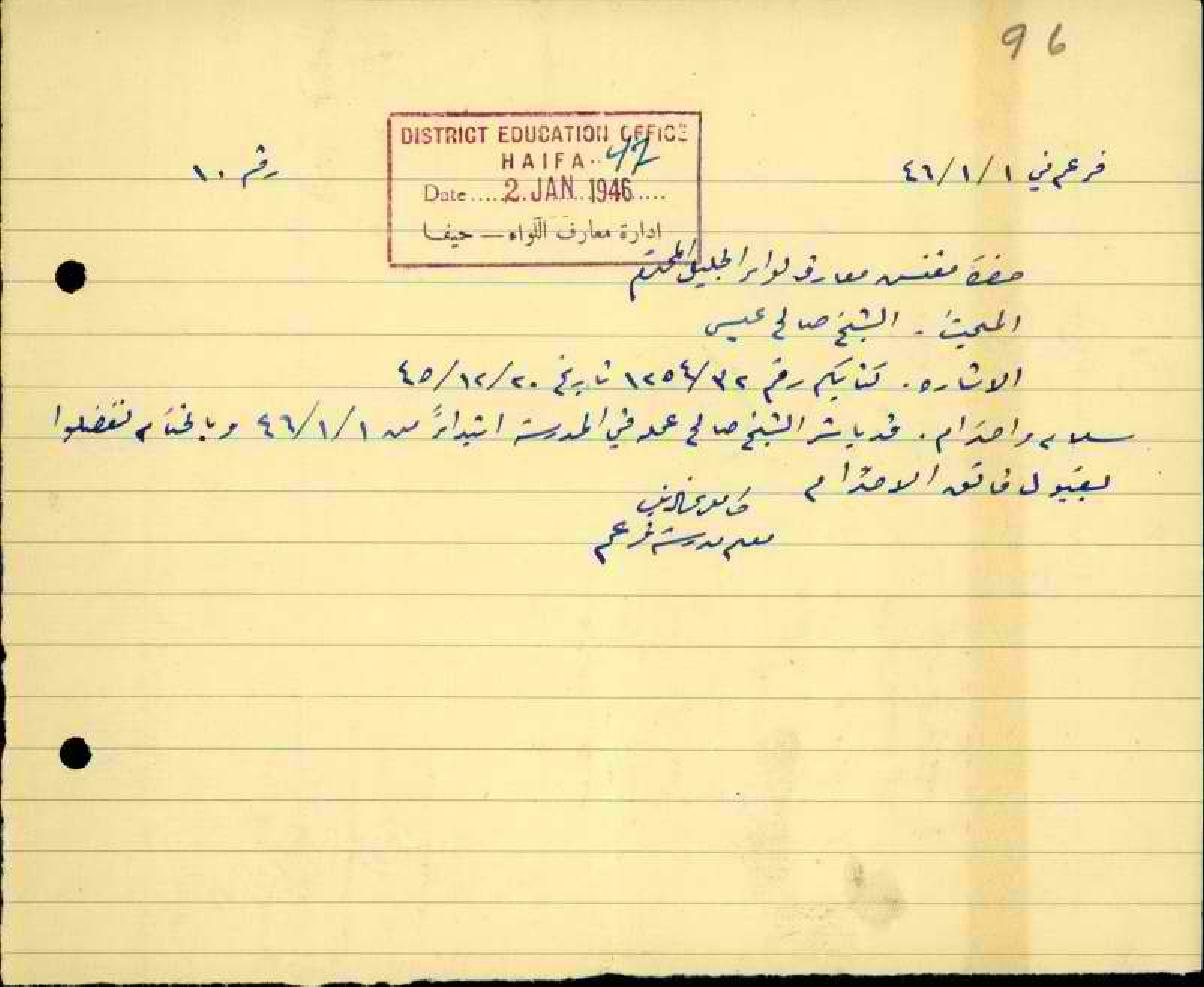 96
DISTRICT EDUCATION OFFICE
HAIFA
Date.....2.JAN.1946.....
ادارة معارف اللواء — حيفا
فرعم في ٤٦/١/١
رقم ١٠
حضرة مفتش معارف لواء الجليل المحترم
المبحث. الشيخ صالح عيسى
الاشاره. كتابكم رقم ١٢٥٤/٣٢ تاريخ ٤٥/١٢/٢٠
سلام واحترام. قد باشر الشيخ صالح عمله في المدرسة ابتداءً من ٤٦/١/١ وبالختام تفضلوا
بقبول فائق الاحترام
معلم مدرسة فرعم